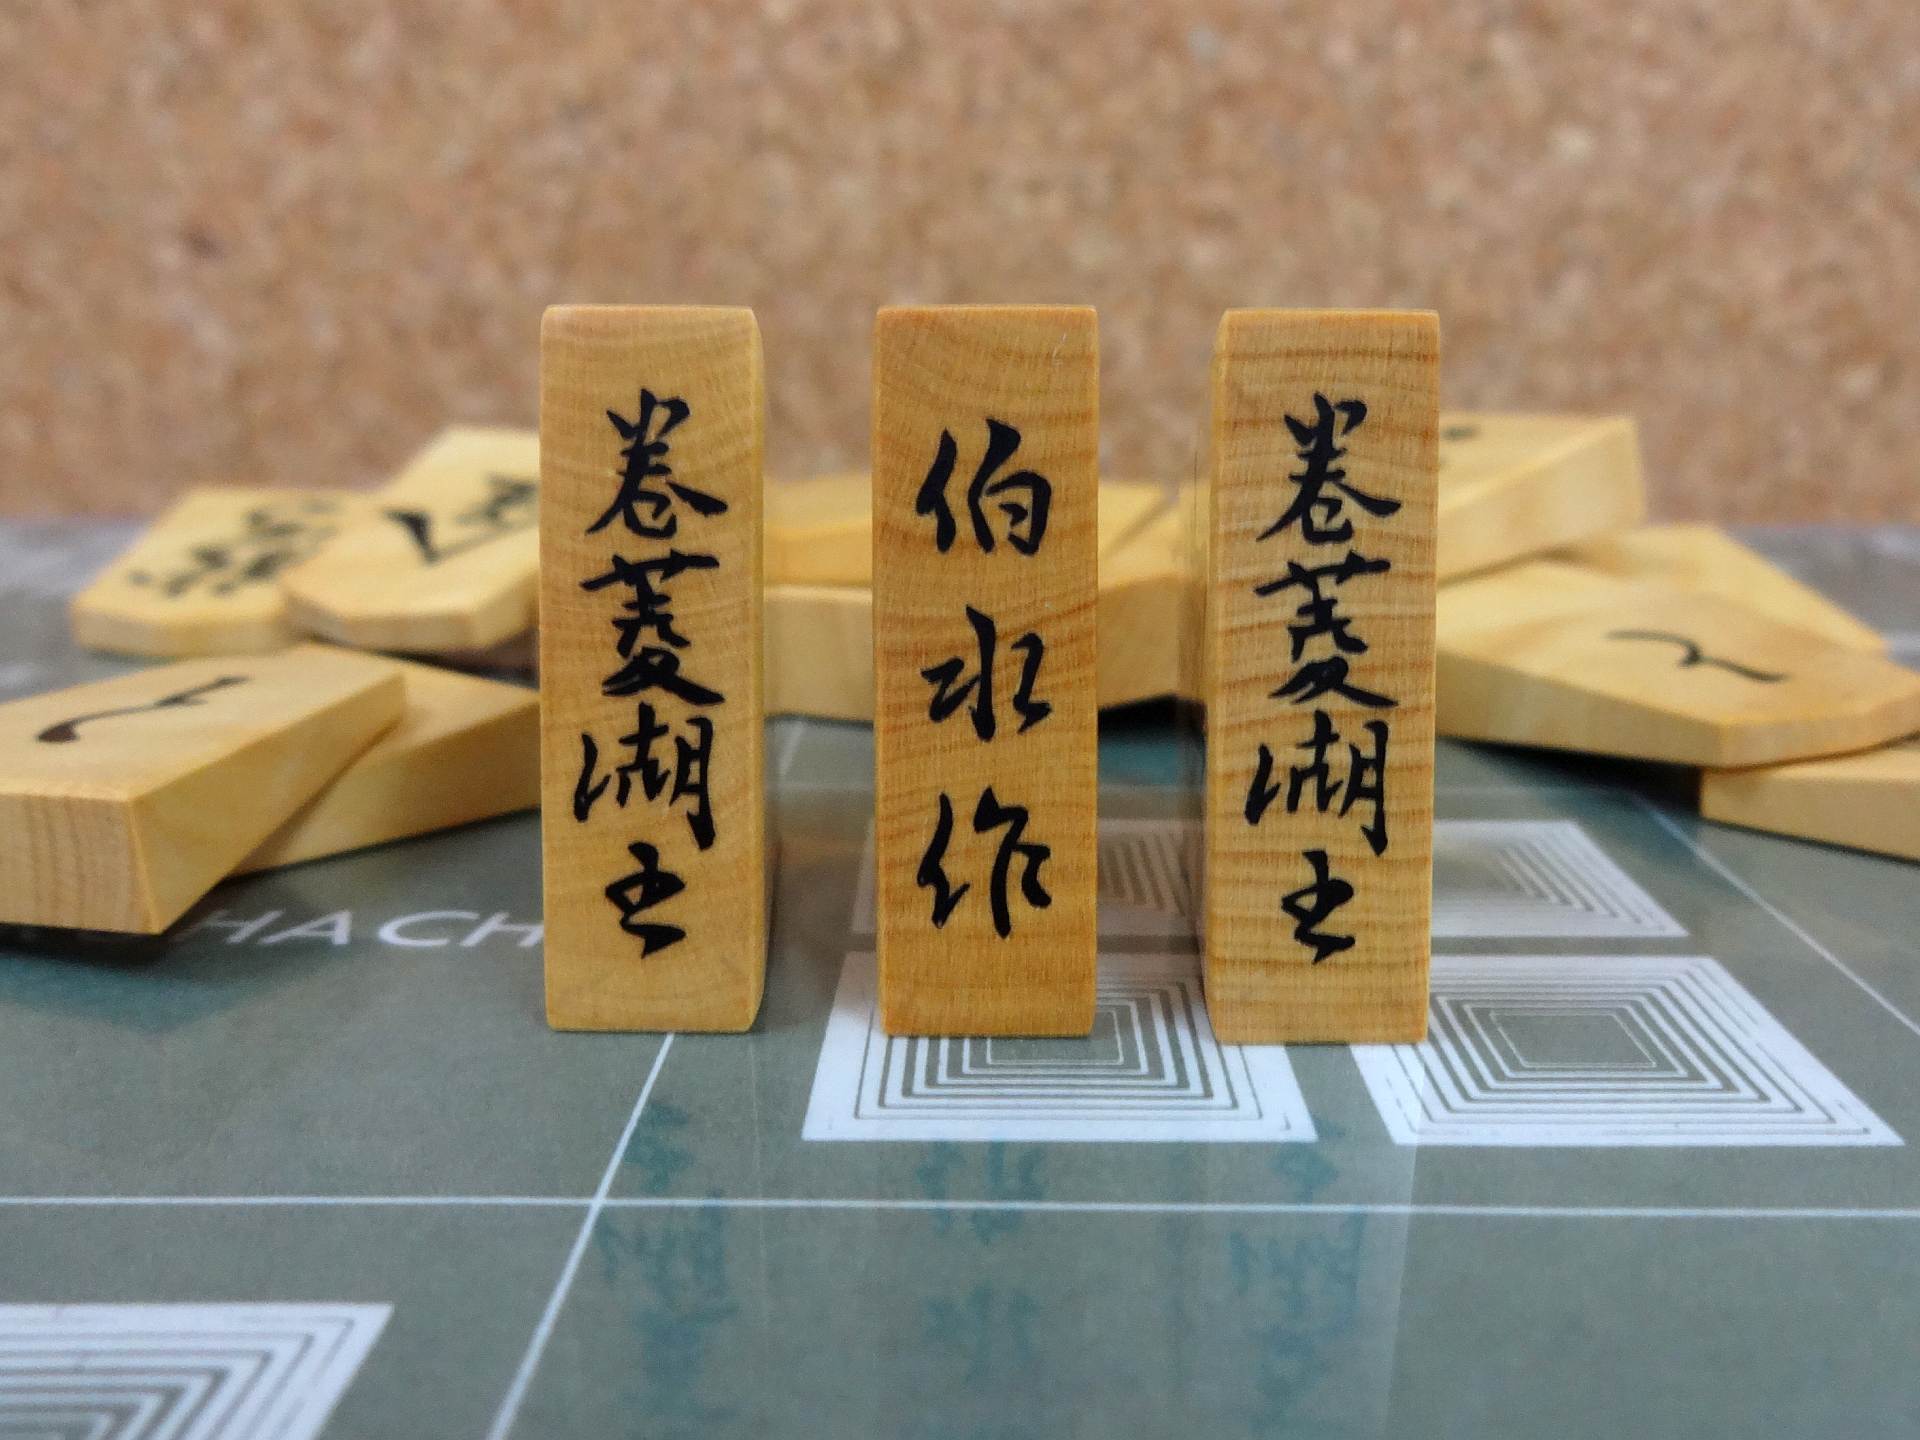 巻菱湖書
伯水作
巻菱湖書
HACH